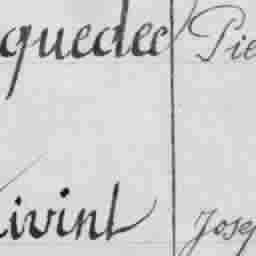 quedec Pie
ivint Josep